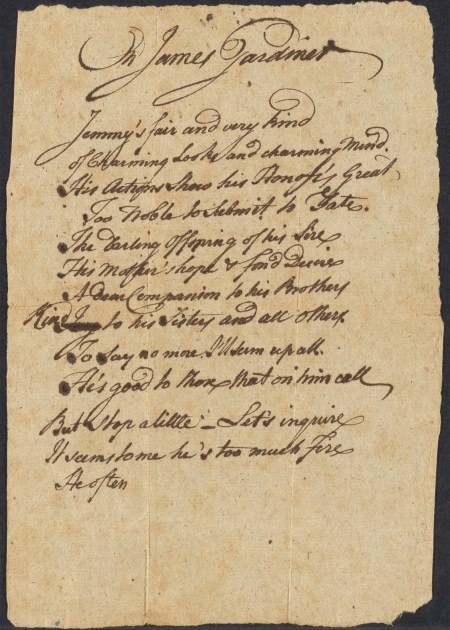 On James Gardiner
Jemmy's fair and very kind
of Charming Looks and charming Mind.
His Actions shew his Honor's Great,
Too Noble to Submit to Fate.
The Darling Offspring of his Sire
His Mother's hope & fond Desire
A dear Companion to his Brothers
Kind to his Sisters and all others.
To Say no more I'll sum up all.
He's good to those that on him call
But Stop a little – Let's inquire
It seems to me he's too much Fire
He often